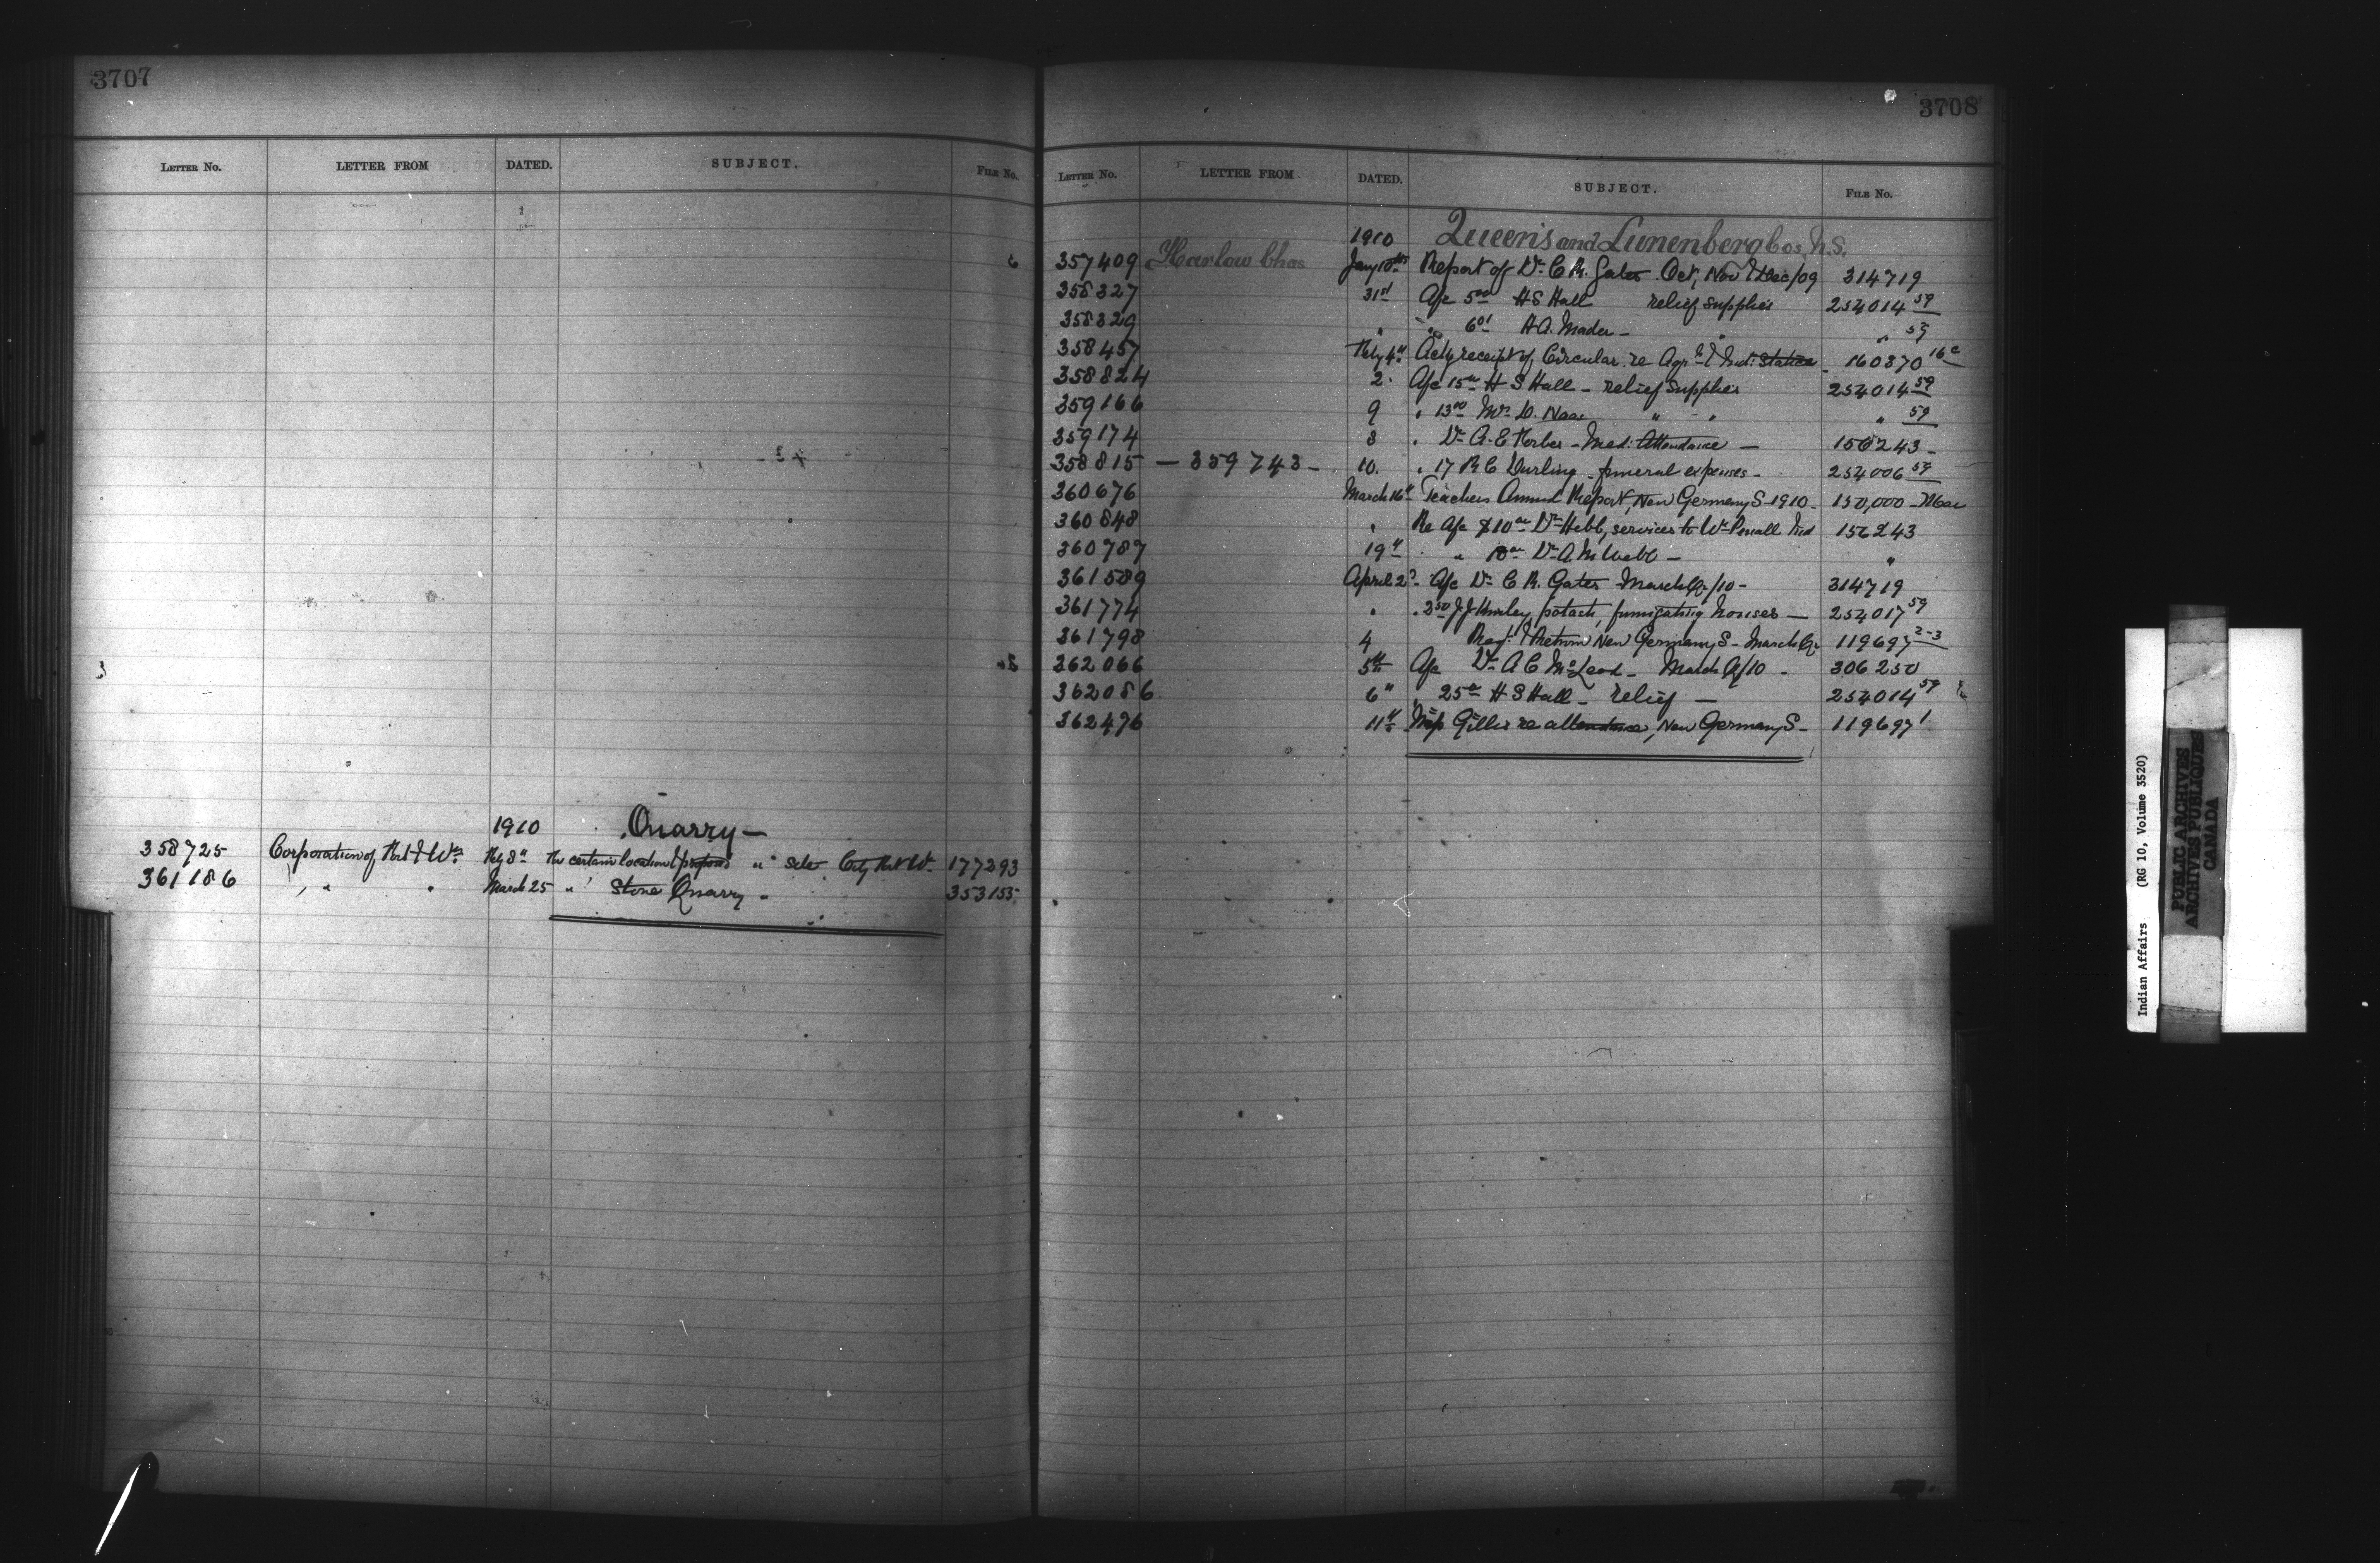 3707
LETTER NO. LETTER FROM DATED. SUBJECT. FILE No.
1910 Quarry —
358725 Corporation of Fort Wm. Feby 8" The certain location proposed " site City Fort Wm. 177293
361186 " " March 25 " Stone Quarry - 353155
3708
LETTER NO. LETTER FROM DATED. SUBJECT. FILE No.
1910 Queen's and Lunenberg Cos, N.S.
357409 Harlow Chas Jany 10th Report of Dr. C. R. Gates Oct, Nov & Dec/09 314719
358327 31st A/c 5 00 H S Hall relief supplies 254014 59
358329 " " 6 01 H A. Mader - " " 59
358457 Feby 4" Ackg receipt of Circular re Agrl & Ind: Statics - 160370 16c
358824 2. A/c 15 00 H S Hall - relief supplies 254014 59
359166 9 " 13 00 Mrs D. Naas " " " 59
359174 8 " Dr A. E. Forbes - Med: Attendance — 156243 -
358815 — 359743 - 10. " 17 R C Durling - funeral expenses - 254006 59
360676 March 16" Teachers Annual Report, New Germany S - 1910 - 150,000 - Mar
360848 " Re A/c $10 00 Dr Hebb, services to Wm Ind 156243
360787 19" " 10 00 Dr A. M. Webb - "
361589 April 2 A/c Dr C. R. Gates - March Qr/10 - 314719
361774 " " 2 50 J. J. potash, fumigating houses — 254017 59
361798 4 Reqn & Return New Germany S - March Qr 119697 2-3
362066 5th A/c Dr A C McLeod - March Q/10 - 306250
362086 6" " 25 00 H S Hall - relief — 254014 59
362476 11th Miss Gillis re attendance, New Germany S - 119697 1
Indian Affairs (RG 10, Volume 3520)
PUBLIC ARCHIVES
ARCHIVES PUBLIQUES
CANADA